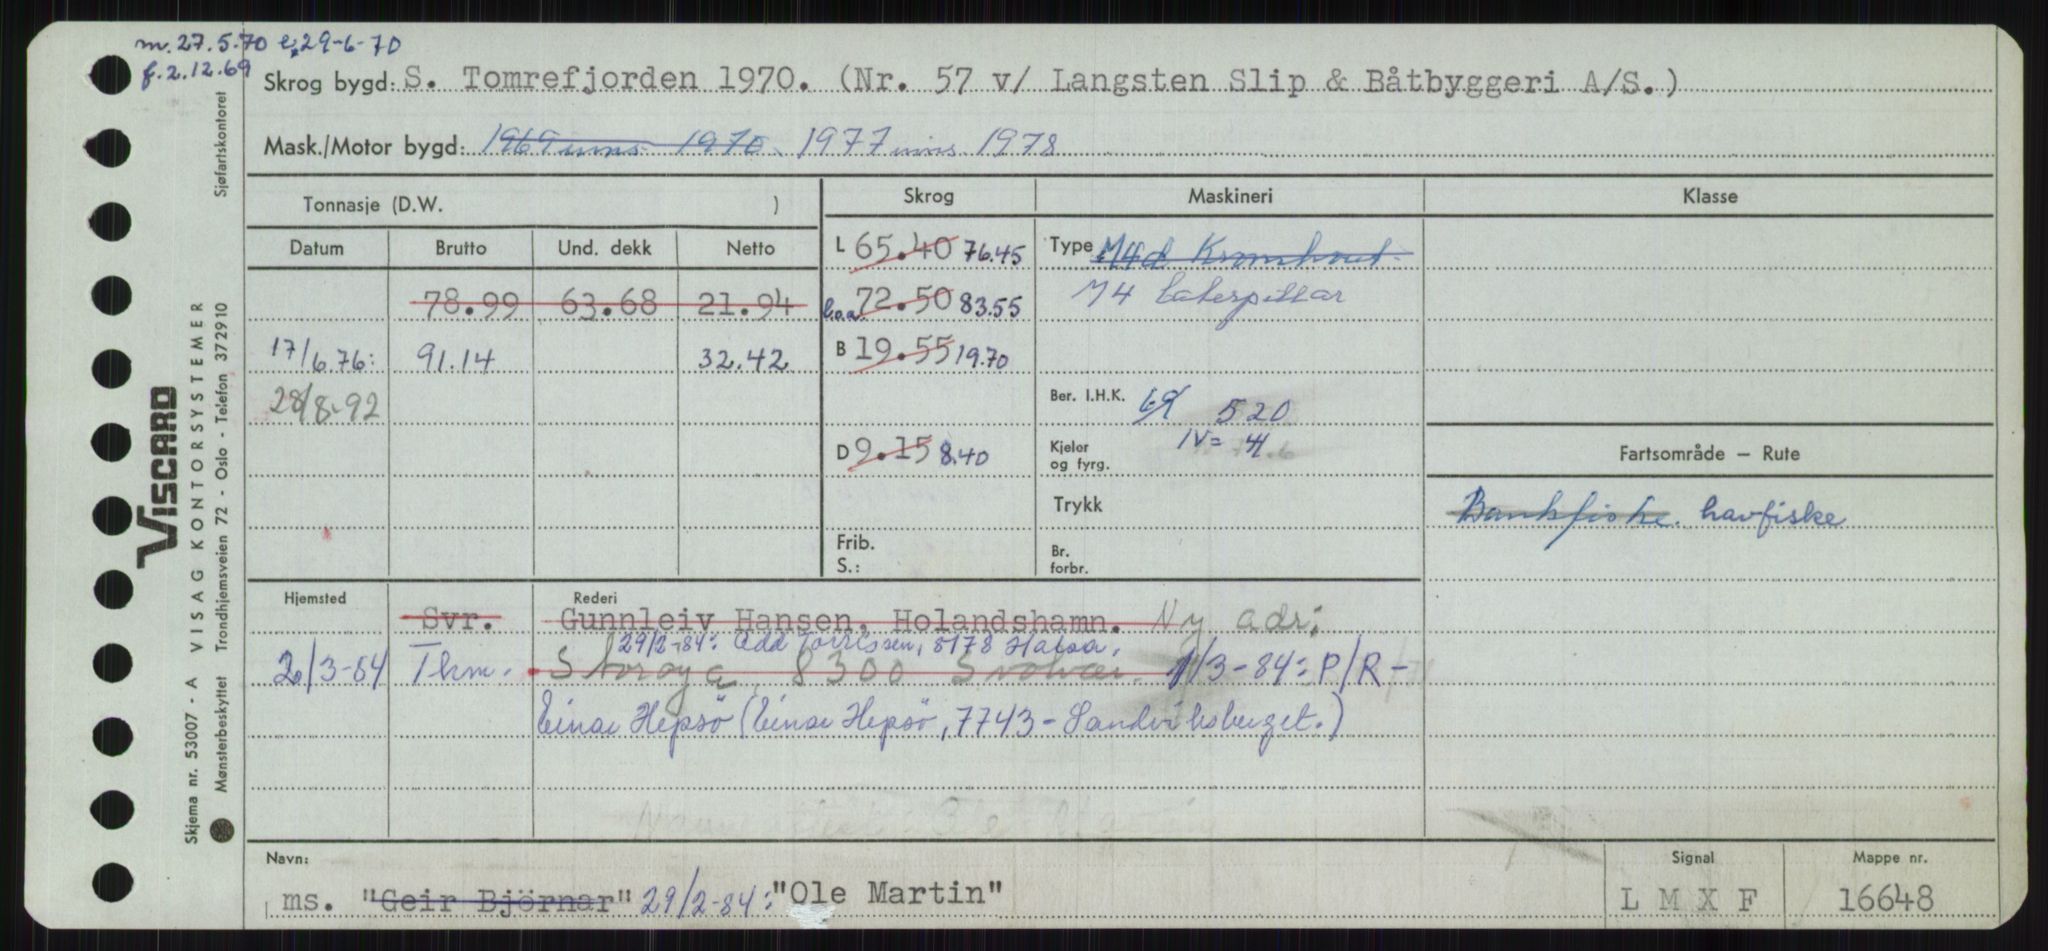 m. 27.5.70 e. 29-6-70
f. 2.12.69
Skrog bygd: S. Tomrefjorden 1970. (Nr. 57 v/ Langsten Slip & Båtbyggeri A/S.)
Mask./Motor bygd: 1969 inns 1970. 1977 inns. 1978
Tonnasje (D.W. )
Skrog
Maskineri
Klasse
Datum Brutto Und. dekk Netto
L 65.40 76.45
Type M4d Kromhout
78.99 63.68 21.94
l.o.a. 72.50 83.55
M4 Caterpillar
17/6.76: 91.14 32.42
B 19.55 19.70
28/8-92
Ber. I.H.K. 69 520
IV= 4
D 9.15 8.40
Kjeler og fyrg.
Fartsområde — Rute
Trykk
Bankfiske. havfiske
Frib.
S.:
Br. forbr.
Hjemsted
Rederi
Svr. Gunnleiv Hansen, Holandshamn. Ny adr:
29/2-84: Odd Torrissen, 8178 Halsa.
20/3-84 Tkm. Storøya, 8300 Svolvær. 1/3-84: P/R -
Einar Hepsø (Einar Hepsø, 7743 - Sandviksberget.)
Navn:
ms. "Geir Björnar" 29/2-84: "Ole Martin"
Signal
L M X F
Mappe nr.
16648
VISCARD
Skjema nr. 53007 - A VISAG KONTORSYSTEMER
Mønsterbeskyttet Trondhjemsveien 72 - Oslo - Telefon 372910
Sjøfartskontoret